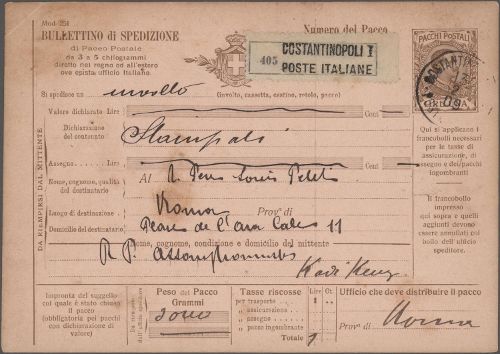 Mod. 251
BULLETTINO di SPEDIZIONE
di Pacco Postale
da 3 a 5 chilogrammi
diretto nel regno od all'estero
ove esista ufficio italiano.
Numero del Pacco
405
COSTANTINOPOLI I
POSTE ITALIANE
PACCHI POSTALI
COSTANTINOPOLI
Si spedisce un
(involto, cassetta, cestino, rotolo, pacco)
Valore dichiarato - Lire
Cent
Dichiarazione del contenuto
Stampati
Assegno - Lire
Cent
DA RIEMPIRSI DAL MITTENTE
Nome, cognome, qualità del destinatario
Al
Luogo di destinazione
Roma
Prov.ª di
Domicilio del destinatario
11
Nome, cognome, condizione e domicilio del mittente
R. P.
Si applicano i francobolli necessari per le tasse di assicurazione, di assegno e dei pacchi ingombranti
Il francobollo impresso qui sopra e quelli aggiunti devono essere annullati col bollo dell'ufficio speditore.
Impronta del suggello col quale è stato chiuso il pacco (obbligatoria pei pacchi con dichiarazione di valore)
Peso del Pacco
Grammi
Tasse riscosse
Lire
Ct.
per trasporto
» assicurazione
» assegno
» pacco ingombrante
Totale
1
Ufficio che deve distribuire il pacco
Roma
Prov.ª di